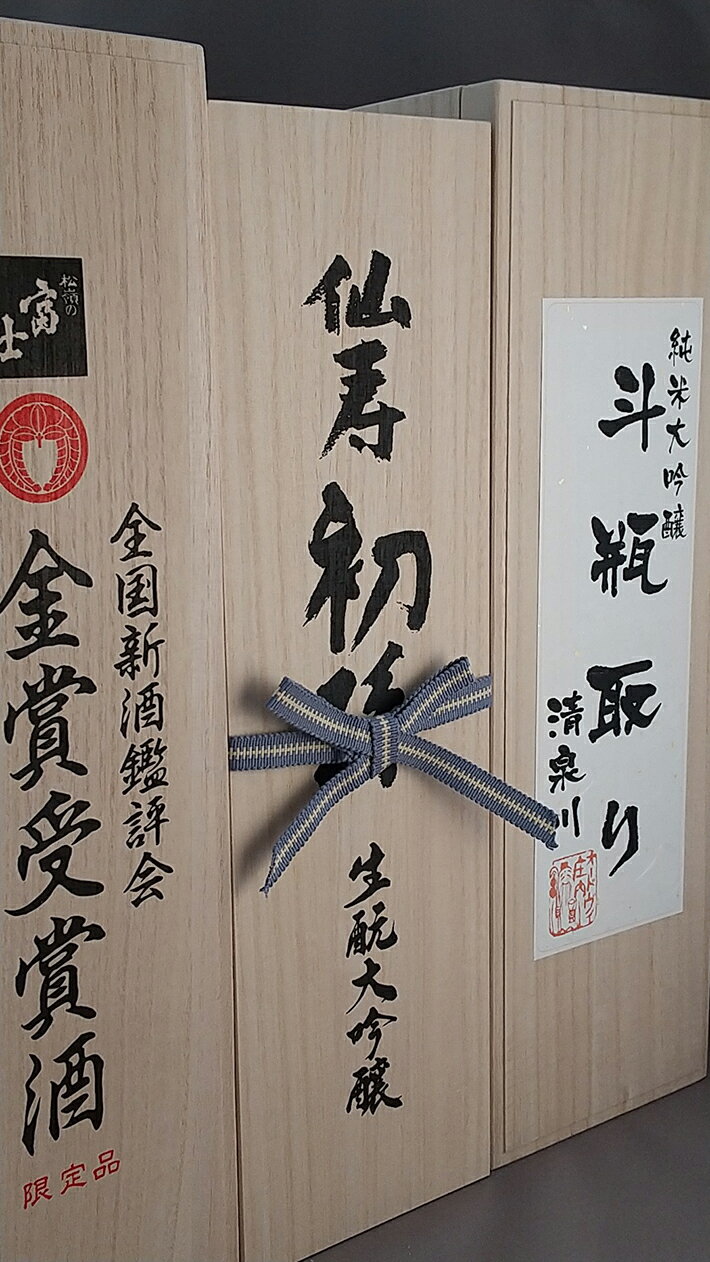 松嶺の
富士
全国新酒鑑評会
金賞受賞酒
限定品
仙寿
初孫
生酛大吟醸
純米大吟醸
斗瓶取り
清泉川
オードヴィ
庄内